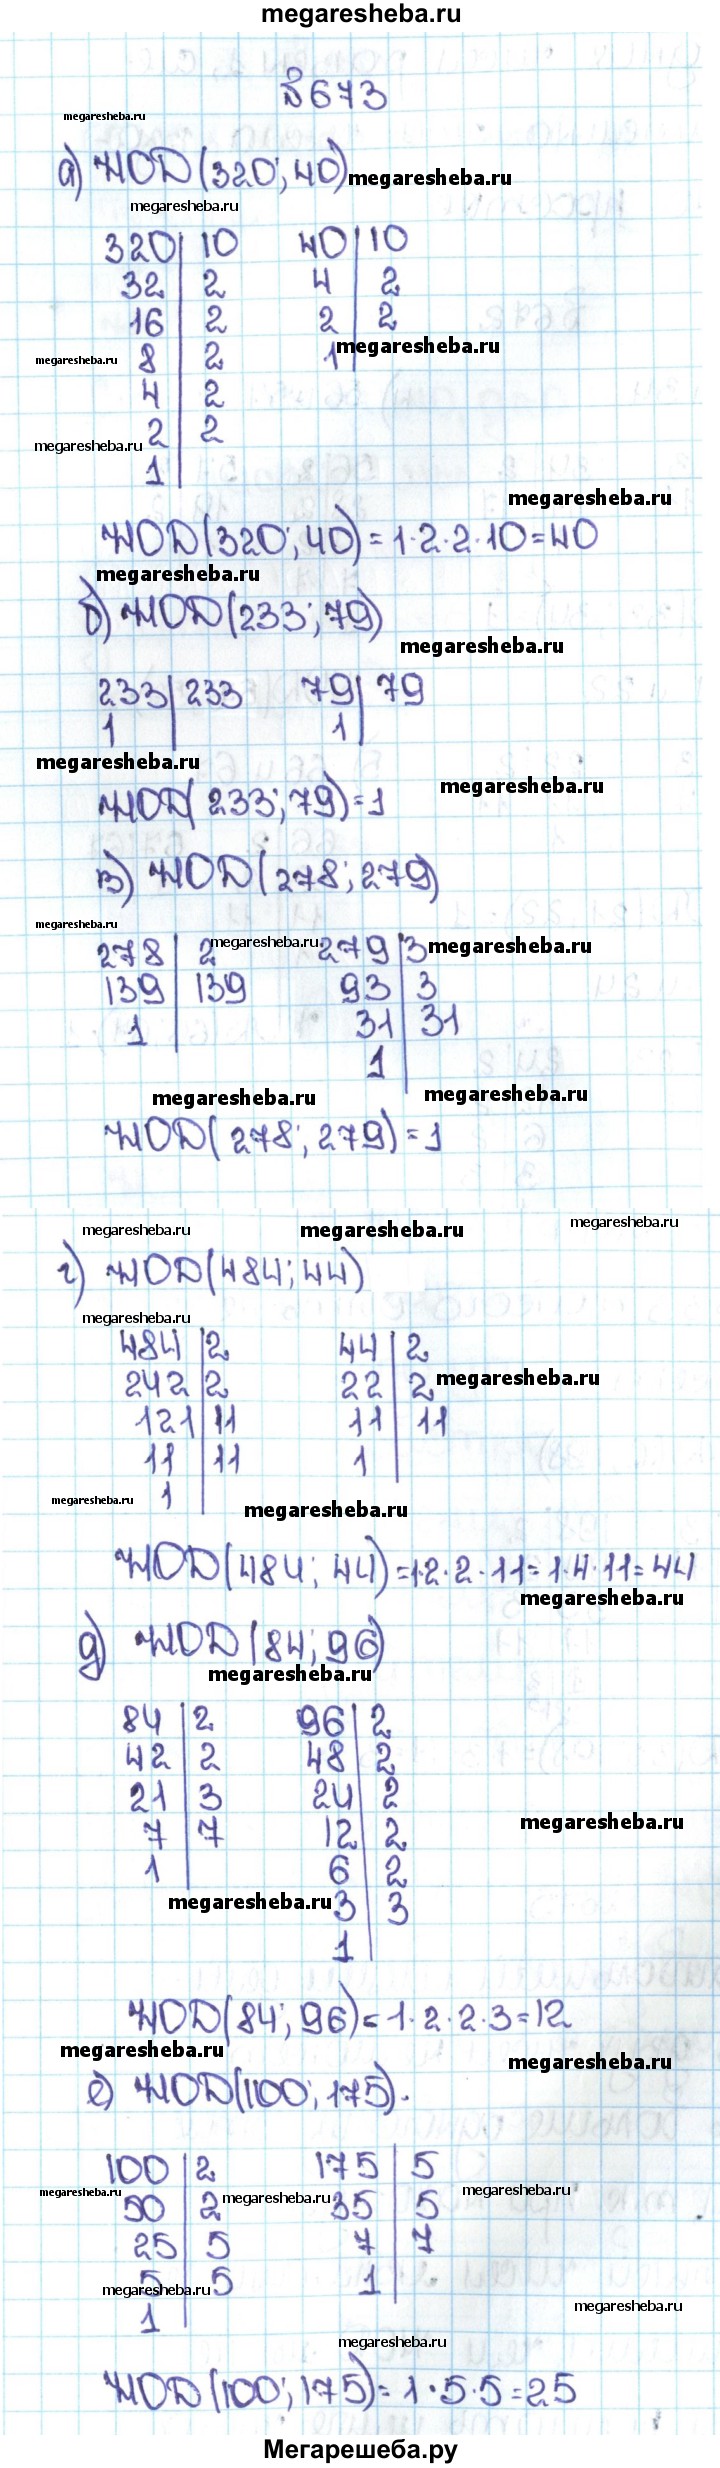 megaresheba.ru
№673
megaresheba.ru
а) НОД(320; 40) megaresheba.ru
megaresheba.ru
320 | 10 40 | 10
32 | 2 4 | 2
16 | 2 2 | 2
megaresheba.ru 8 | 2 1 | megaresheba.ru
4 | 2
megaresheba.ru 2 | 2
1 |
megaresheba.ru
НОД(320; 40) = 1·2·2·10 = 40
megaresheba.ru
б) НОД(233; 79)
megaresheba.ru
233 | 233 79 | 79
1 | 1 |
megaresheba.ru
megaresheba.ru
НОД(233; 79) = 1
в) НОД(278; 279)
megaresheba.ru
278 | 2 megaresheba.ru 279 | 3 megaresheba.ru
139 | 139 93 | 3
1 | 31 | 31
1 |
megaresheba.ru megaresheba.ru
НОД(278; 279) = 1
megaresheba.ru megaresheba.ru megaresheba.ru
г) НОД(484; 44)
megaresheba.ru
484 | 2 44 | 2
242 | 2 22 | 2 megaresheba.ru
121 | 11 11 | 11
11 | 11 1 |
megaresheba.ru 1 | megaresheba.ru
НОД(484; 44) = 1·2·2·11 = 1·4·11 = 44
megaresheba.ru
д) НОД(84; 96)
megaresheba.ru
84 | 2 96 | 2
42 | 2 48 | 2
21 | 3 24 | 2
megaresheba.ru
7 | 7 12 | 2
1 | 6 | 2
megaresheba.ru 3 | 3
1 |
НОД(84; 96) = 1·2·2·3 = 12
megaresheba.ru megaresheba.ru
е) НОД(100; 175).
100 | 2 175 | 5
megaresheba.ru 50 | 2 megaresheba.ru 35 | 5 megaresheba.ru
25 | 5 7 | 7
5 | 5 1 |
megaresheba.ru
1 | megaresheba.ru
megaresheba.ru
НОД(100; 175) = 1·5·5 = 25
Мегарешеба.ру